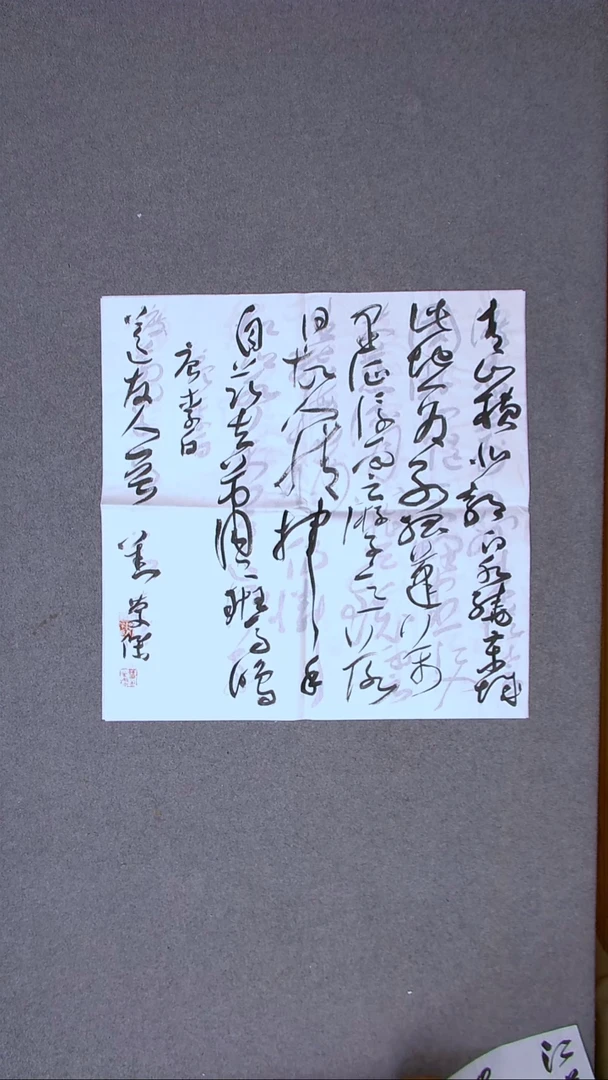 青山横北郭白水繞東城
此地一為别孤蓬万
里征浮雲游子意落
日故人情挥手
自兹去萧萧班马鸣
唐李白
送友人一首
江